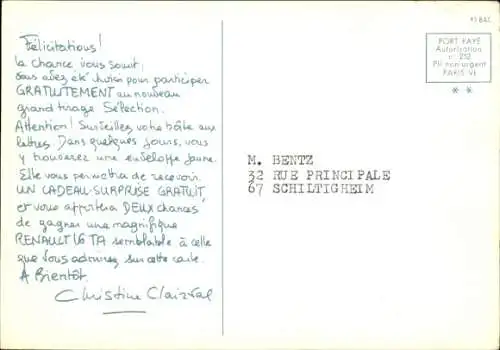 Félicitations!
la chance vous sourit,
vous avez été choisi pour participer
GRATUITEMENT au nouveau
grand tirage Sélection.
Attention! Surveillez votre boîte aux
lettres. Dans quelques jours, vous
y trouverez une enveloppe jaune.
Elle vous permettra de recevoir
UN CADEAU-SURPRISE GRATUIT
et vous apportera DEUX chances
de gagner une magnifique
RENAULT 16 TA semblable à celle
que vous admirez sur cette carte.
A Bientôt.
Christine Clairval
43 842
PORT PAYÉ
Autorisation
n° 252
Pli non urgent
PARIS VI
* *
M. BENTZ
32 RUE PRINCIPALE
67 SCHILTIGHEIM